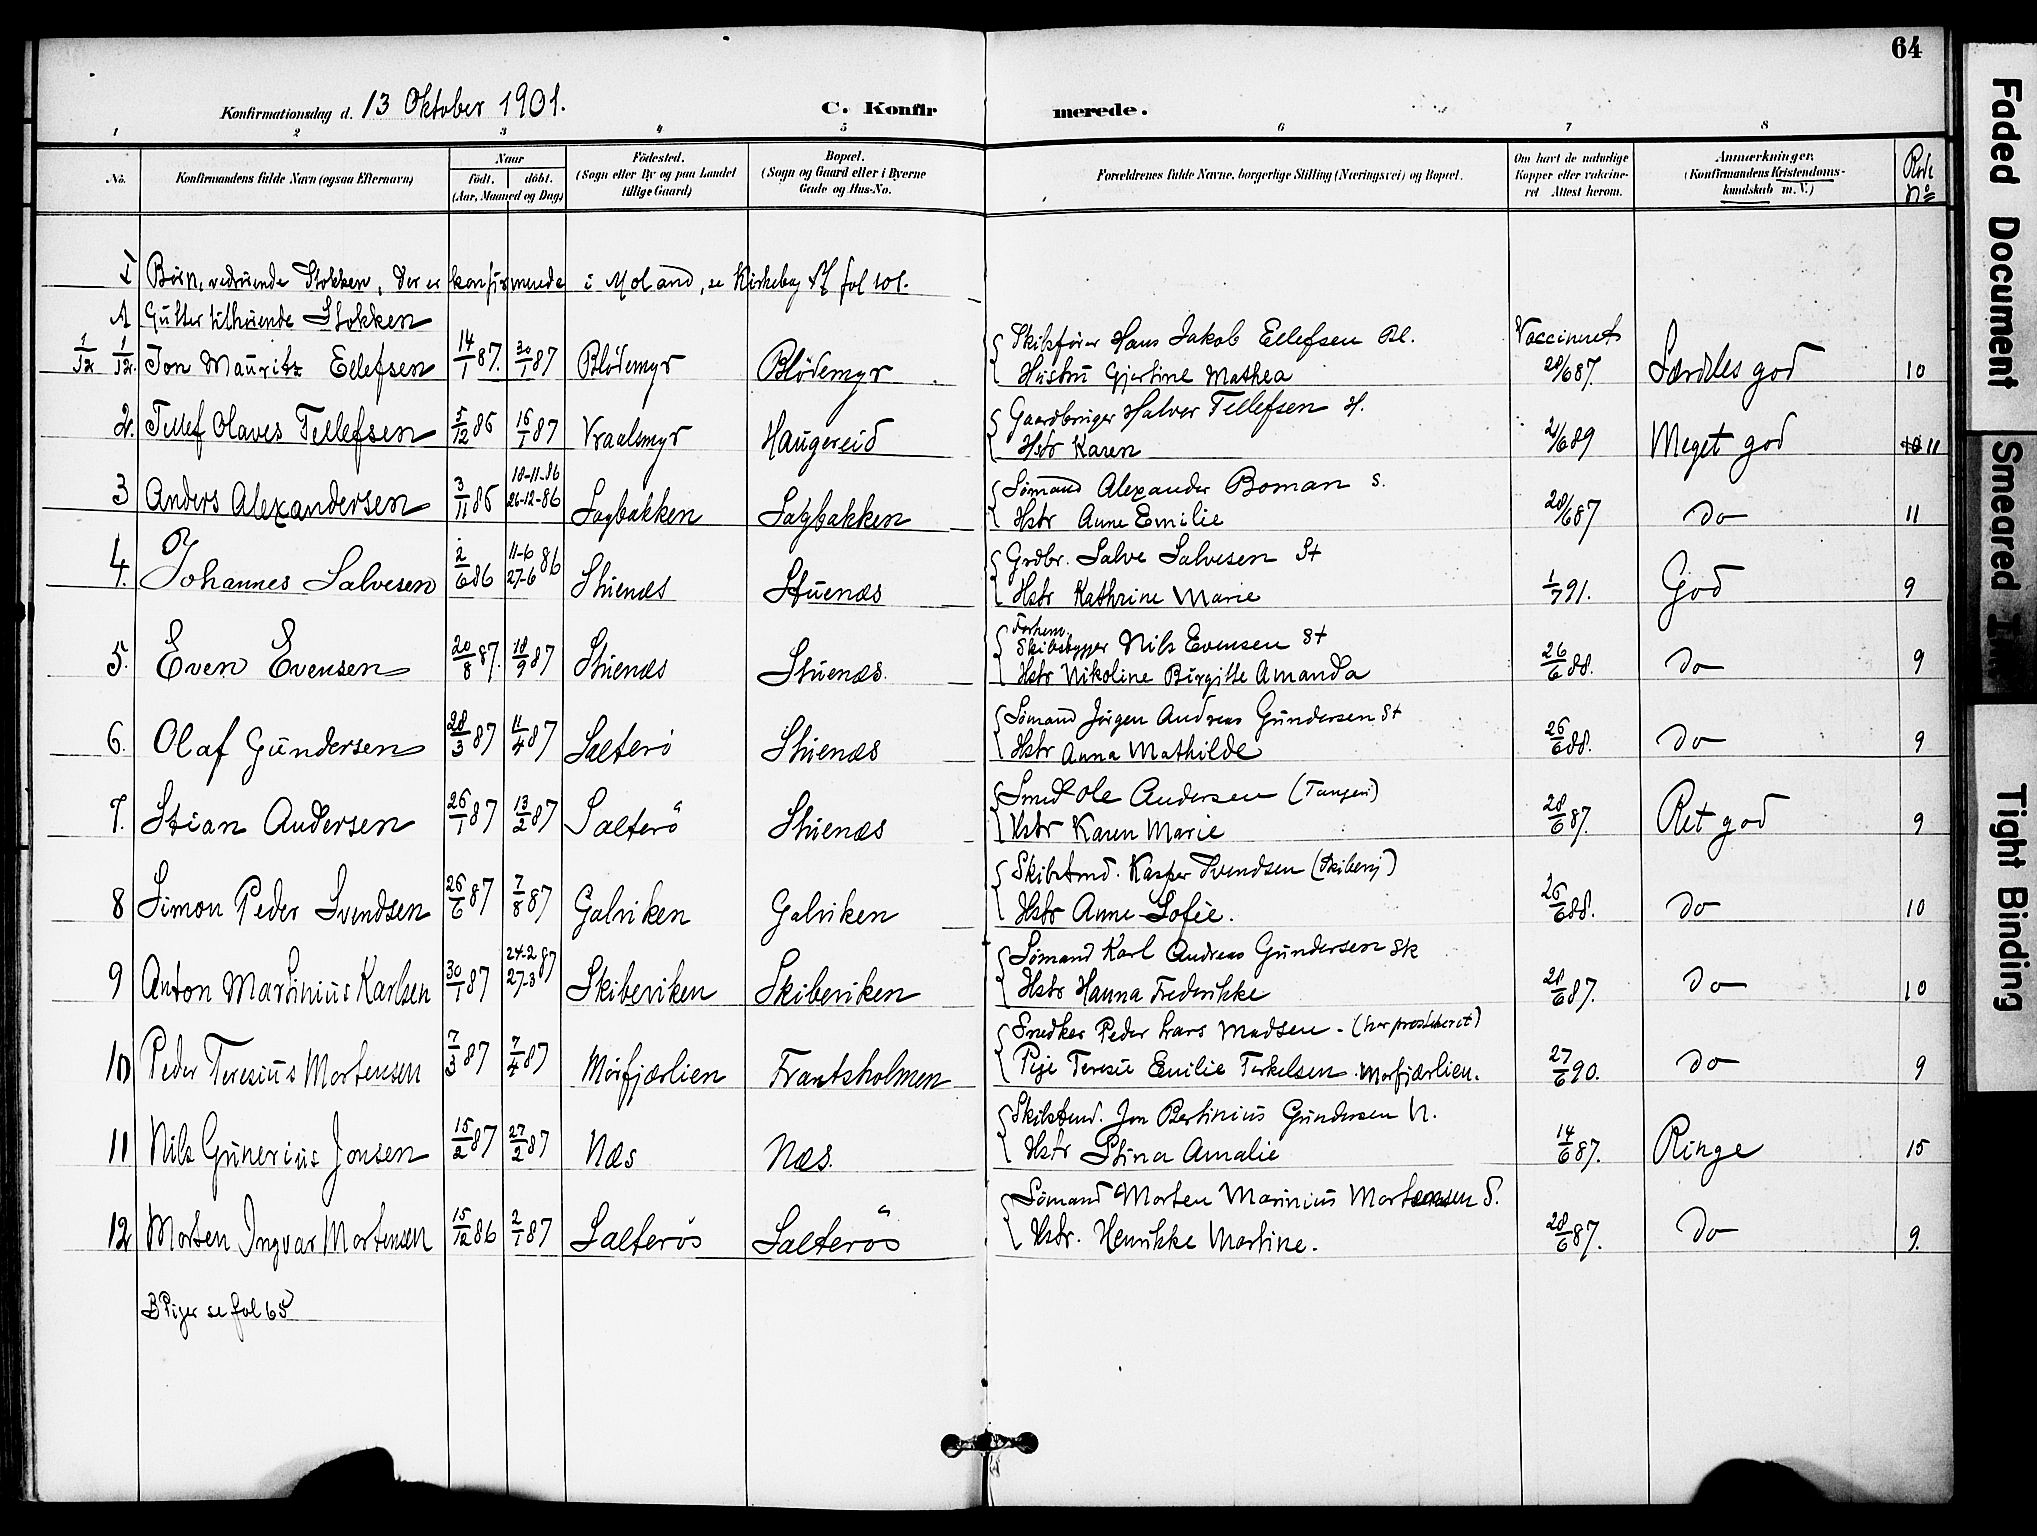 64
Konfirmationsdag d. 13 Oktober 1901.
C. Konfirmerede.
1 2 3 4 5 6 7 8
No.
Konfirmandens fulde Navn (ogsaa Efternavn)
Naar
født. døbt.
(Aar, Maaned og Dag)
Fødested.
(Sogn eller By og paa Landet
tillige Gaard)
Bopæl.
(Sogn og Gaard eller i Byerne
Gade og Hus-No.
Forældrenes fulde Navne, borgerlige Stilling (Næringsvei) og Bopæl.
Om havt de naturlige
Kopper eller vakcine-
ret Attest herom.
Anmærkninger.
(Konfirmandens Kristendoms-
kundskab m. V.)
Rode
No
I Børn, vedrørende Stokken, der er konfirmerede i Moland, se Kirkebog fol 101.
A Gutter tilhørende Stokken
1/12 1/12. Jon Mauritz Ellefsen 14/1 87. 30/1 87 Blødemyr Blødemyr Skibsfører Hans Jakob Ellefsen Bl. Vaccineret
Hustru Gjertine Mathea 28/6 87. Særdeles god 10
2. Tellef Olaves Tellefsen 5/12 86 16/1 87 Vraalemyr Haugereid Gaardbruger Halvor Tellefsen H.
Hstr Karen 2/6 89 Meget god 10 11
3 Anders Alexandersen 3/11 86 18-11-86
26-12-86 Sagbakken Sagbakken Sømand Alexander Boman S.
Hstr Anne Emilie 28/6 87 do 11
4. Johannes Salvesen 2/6 86 11-6
27-6 86 Stuenæs Stuenæs Grdbr. Salve Salvesen St
Hstr Kathrine Marie 1/7 91. God 9
5. Even Evensen 20/8 87. 18/9 87 Stuenæs Stuenæs. Forhen.
Skibsbygger Nils Evensen St
Hstr Nikoline Birgitte Amanda 26/6 88. do 9
6. Olaf Gundersen 28/3 87 11/4 87 Salterø Stuenæs Sømand Jørgen Andreas Gundersen St
Hstr Anna Mathilde 26/6 88. do 9
7. Stian Andersen 26/1 87 13/2 87 Salterø Stuenæs Smed Ole Andersen (Tangen)
Hstr Karen Marie 28/6 87. Ret god 9
8 Simon Peder Svendsen 26/6 87 7/8 87 Galviken Galviken Skibstmd. Kasper Svendsen
Hstr Anne Sofie. 26/6 88. do 10
9 Anton Martinius Karlsen 30/1 87 24-2
27-3 87 Skibeviken Skibeviken Sømand Karl Andreas Gundersen Sk
Hstr Hanna Fredrikke 28/6 87. do 10
10 Peder Teresius Mortensen 7/3 87 7/4 87 Mørfjærlien Frantsholmen Snedker Peder Lars Madsen
Pige Teresie Emilie Terkelsen Mørfjærlien. 27/6 90. do 9
11 Nils Gunerius Jonsen 15/2 87 27/2 87 Næs Næs. Skibstmd. Jon Bertinius Gundersen N.
Hstr Stina Amalie 14/6 87. Ringe 15
12 Morten Ingvar Mortensen 15/12 86 2/1 87 Salterøs Salterøs Sømand Morten Marinius Mortensen S.
Hstr. Henrikke Martine. 28/6 87. do 9.
B Piger se fol 65
Faded Document
Smeared Ink
Tight Binding